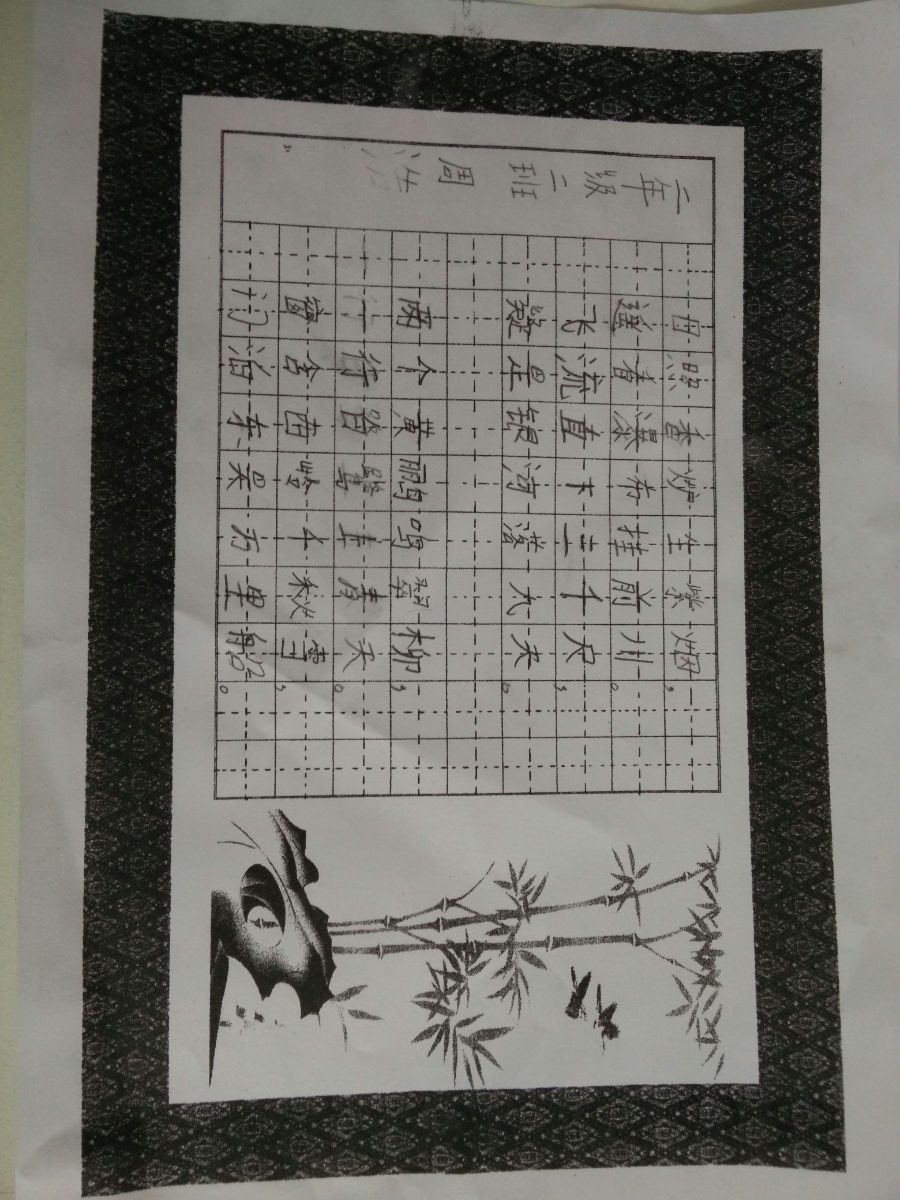 二年级二班 周
日照香炉生紫烟，
遥看瀑布挂前川。
飞流直下三千尺，
疑是银河落九天。
两个黄鹂鸣翠柳，
一行白鹭上青天。
窗含西岭千秋雪，
门泊东吴万里船。